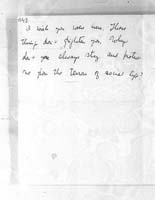 I wish you were here. These
things don't frighten you. Why
don't you always stay and protect
me from the terrors of social life?